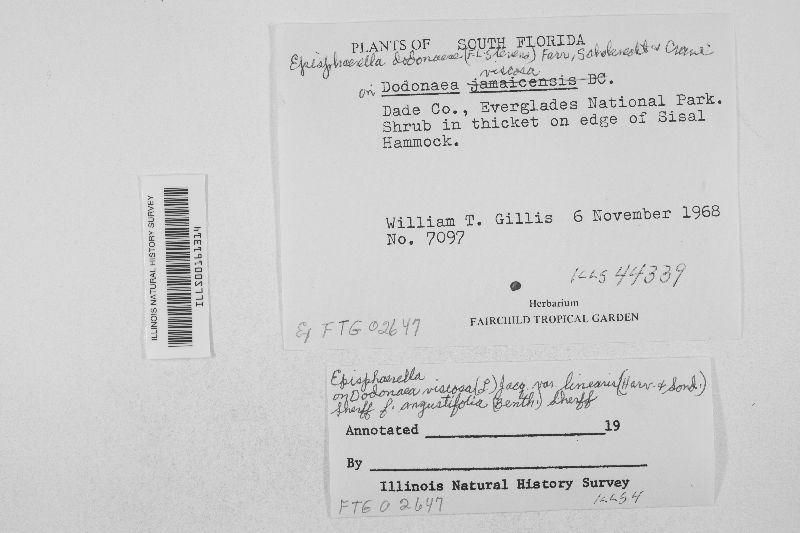 PLANTS OF SOUTH FLORIDA
Episphaerella dodonaeae (F.L. Stevens) Farr, Schokn
on Dodonaea jamaicensis DC.
viscosa
Dade Co., Everglades National Park.
Shrub in thicket on edge of Sisal
Hammock.
William T. Gillis 6 November 1968
No. 7097
ILLS 44339
Herbarium
FAIRCHILD TROPICAL GARDEN
Ex FTG 02647
ILLINOIS NATURAL HISTORY SURVEY
ILLS00161314
Episphaerella
on Dodonaea viscosa (L) Jacq. var. linearis (Harv. & Sond.)
Sherff f. angustifolia (Benth.) Sherff
Annotated 19
By
Illinois Natural History Survey
FTG 02647
ILLS 4